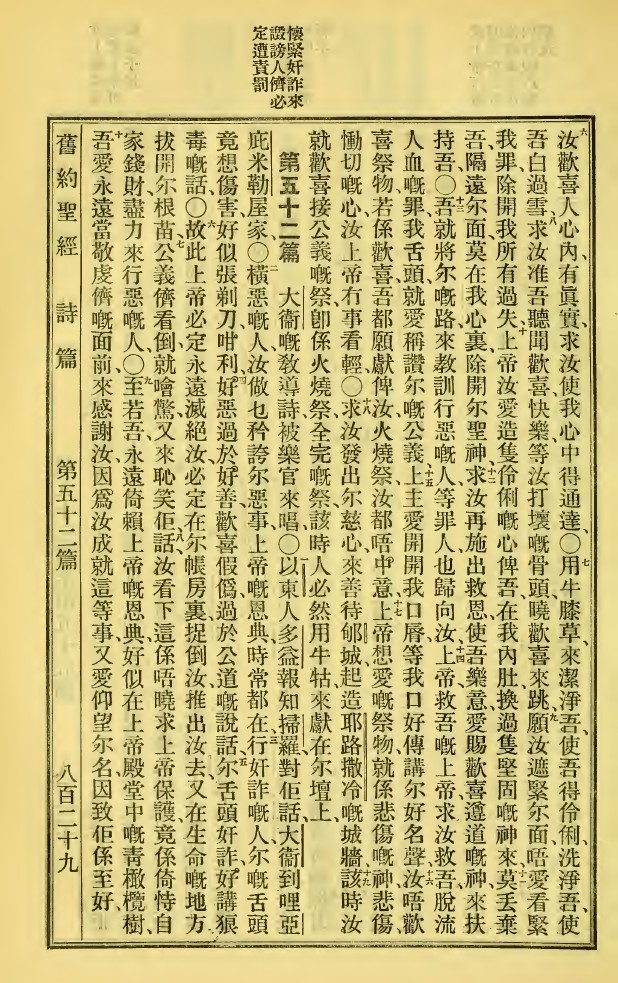 懷緊奸詐來
譭謗人儕必
定遭責罰
六汝歡喜人心內有眞實、求汝使我心中得通達、〇七用牛膝草來潔淨吾、使吾得伶俐、洗淨吾、使
吾白過雪、八求汝准吾聽聞歡喜快樂、等汝打壞嘅骨頭、曉歡喜來跳、九願汝遮緊尔面、唔愛看緊
我罪、除開我所有過失、十上帝汝愛造隻伶俐嘅心俾吾、在我內肚、換過隻堅固嘅神來、十一莫丢棄
吾、隔遠尔面、莫在我心裏除開尔聖神、十二求汝再施出救恩、使吾樂意、愛賜歡喜遵道嘅神、來扶
持吾、〇十三吾就將尔嘅路來教訓行惡嘅人、等罪人也歸向汝、十四上帝救吾嘅上帝、求汝救吾脫流
人血嘅罪、我舌頭就愛稱讚尔嘅公義、十五上主愛開開我口唇、等我口好傳講尔好名聲、十六汝唔歡
喜祭物、若係歡喜、吾都願獻俾汝、火燒祭汝都唔中意、十七上帝想愛嘅祭物、就係悲傷嘅神、悲傷
慟切嘅心、汝上帝冇事看輕、〇十八求汝發出尔慈心、來善待郇城、起造耶路撒冷嘅城牆、十九該時汝
就歡喜接公義嘅祭、卽係火燒祭、全完嘅祭、該時人必然用牛牯來獻在尔壇上、
第五十二篇 大衞嘅教導詩、被樂官來唱、〇以東人多益報知掃羅、對佢話、大衞到哩亞
庇米勒屋家、〇二橫惡嘅人、汝做乜矜誇尔惡事、上帝嘅恩典、時常都在、三行奸詐嘅人、尔嘅舌頭
竟想傷害、好似張剃刀咁利、四好惡過於好善、歡喜假僞過於公道嘅說話、五尔舌頭奸詐、好講狠
毒嘅話、〇六故此上帝必定永遠滅絕汝、必定在尔帳房裏捉倒汝、推出汝去、又在生命嘅地方、
拔開尔根苗、七公義儕看倒、就噲驚、又來恥笑佢話、八汝看下、這係唔曉求上帝保護、竟係倚恃自
家錢財、盡力來行惡嘅人、〇九至若吾永遠倚賴上帝嘅恩典、好似在上帝殿堂中嘅靑橄欖樹、
十吾愛永遠當敬虔儕嘅面前、來感謝汝、因爲汝成就這等事、又愛仰望尔名、因致佢係至好、
舊約聖經 詩篇 第五十二篇 八百二十九